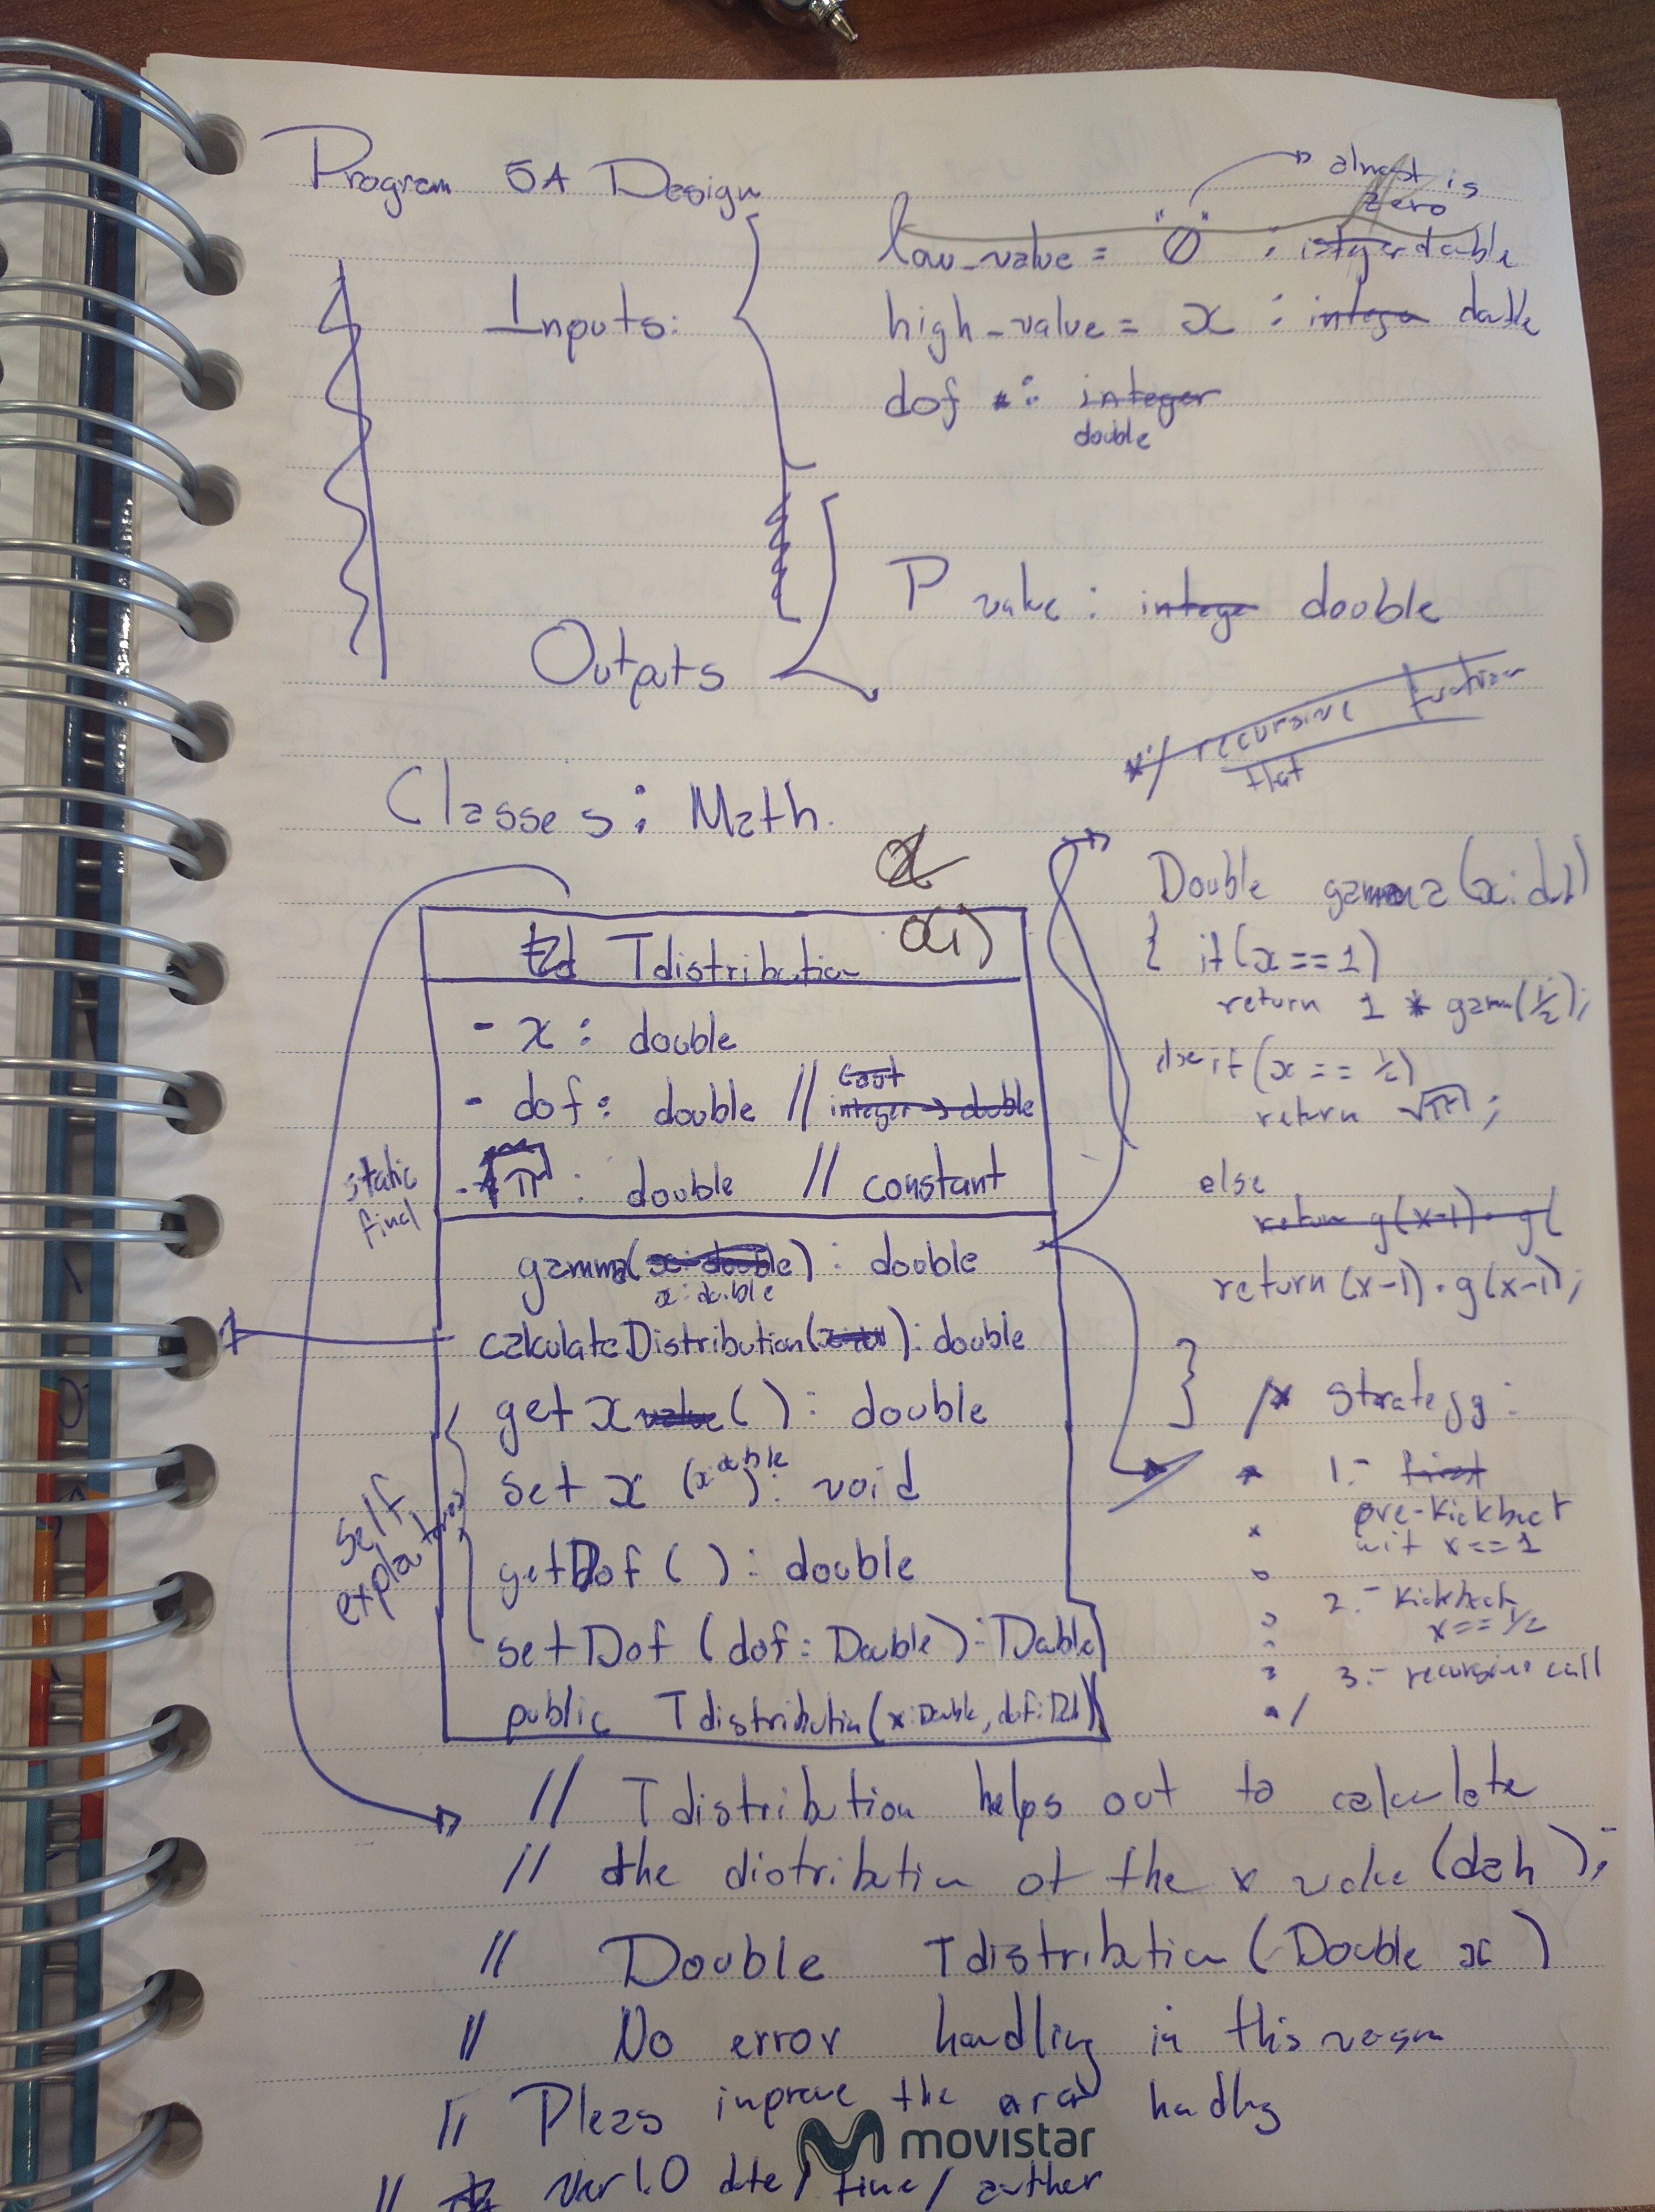 Program 5A Design
almost is
zero
low_value = "0" : integer double
Inputs:
high_value = x : integer double
dof : integer
double
P value : integer double
Outputs
*/ recursive function
that
Classes: Math.
Tdistribution
- x : double
- dof : double // cast
integer → double
static
final
- π : double // constant
gamma(x: double) : double
x: double
calculateDistribution( ) : double
get x value ( ) : double
set x (x double) : void
self
getDof ( ) : double
setDof (dof : Double) : Double
public Tdistribution(x: Double, dof: Dbl)
Double gamma(x: dbl)
{ if(x == 1)
return 1 * gam(1/2);
else if(x == 1/2)
return √π;
else
return g(x-1) · g(
return (x-1) · g(x-1);
}
/* Strategy:
* 1.- first
pre-kickback
wit x == 1
2.- kickback
x == 1/2
3.- recursive call
*/
// Tdistribution helps out to calculate
// the distribution of the x value (dah);
// Double Tdistribution (Double x)
// No error handling in this
// Pleas improve the handling
movistar
// Ver 1.0 dte / time / author